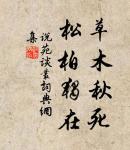 草木秋死
松柏獨在
說苑談叢詞典網
集